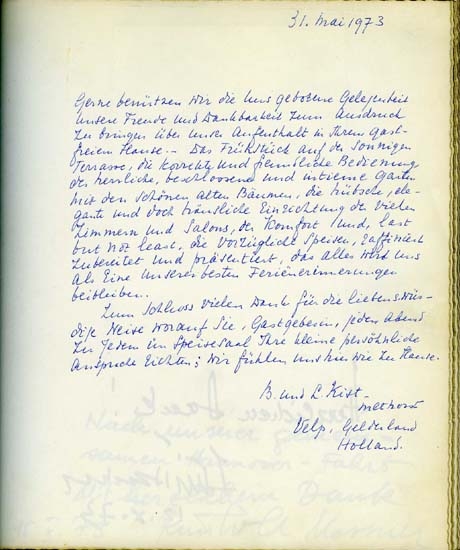 31. Mai 1973
Gerne benützen wir die uns gebotene Gelegenheit
unsere Freude und Dankbarkeit zum Ausdruck
zu bringen über unser Aufenthalt in Ihrem Gast-
freien Hause.- Das Frühstück auf der sonnigen
Terrasse, die korrekte und freundliche Bedienung
der herrliche, beschlossene und intieme Garten
mit den schönen alten Bäumen, die hübsche, ele-
gante und doch häusliche Einrichtung der vielen
Zimmern und Salons, der Komfort und, last
but not least, die vorzügliche Speisen, raffiniert
zubereitet und präsentiert, das alles wird uns
als eine unserer besten Ferienerinnerungen
beibleiben.
Zum Schluss vielen Dank für die liebenswür-
dige Weise worauf Sie, Gastgeberin, jeden Abend
zu jedem im Speisesaal Ihre kleine persönliche
Ansprache richten; wir fühlen uns hier wie zu Hause.
B. und L. Kist-
Velp, Gelderland
Holland.